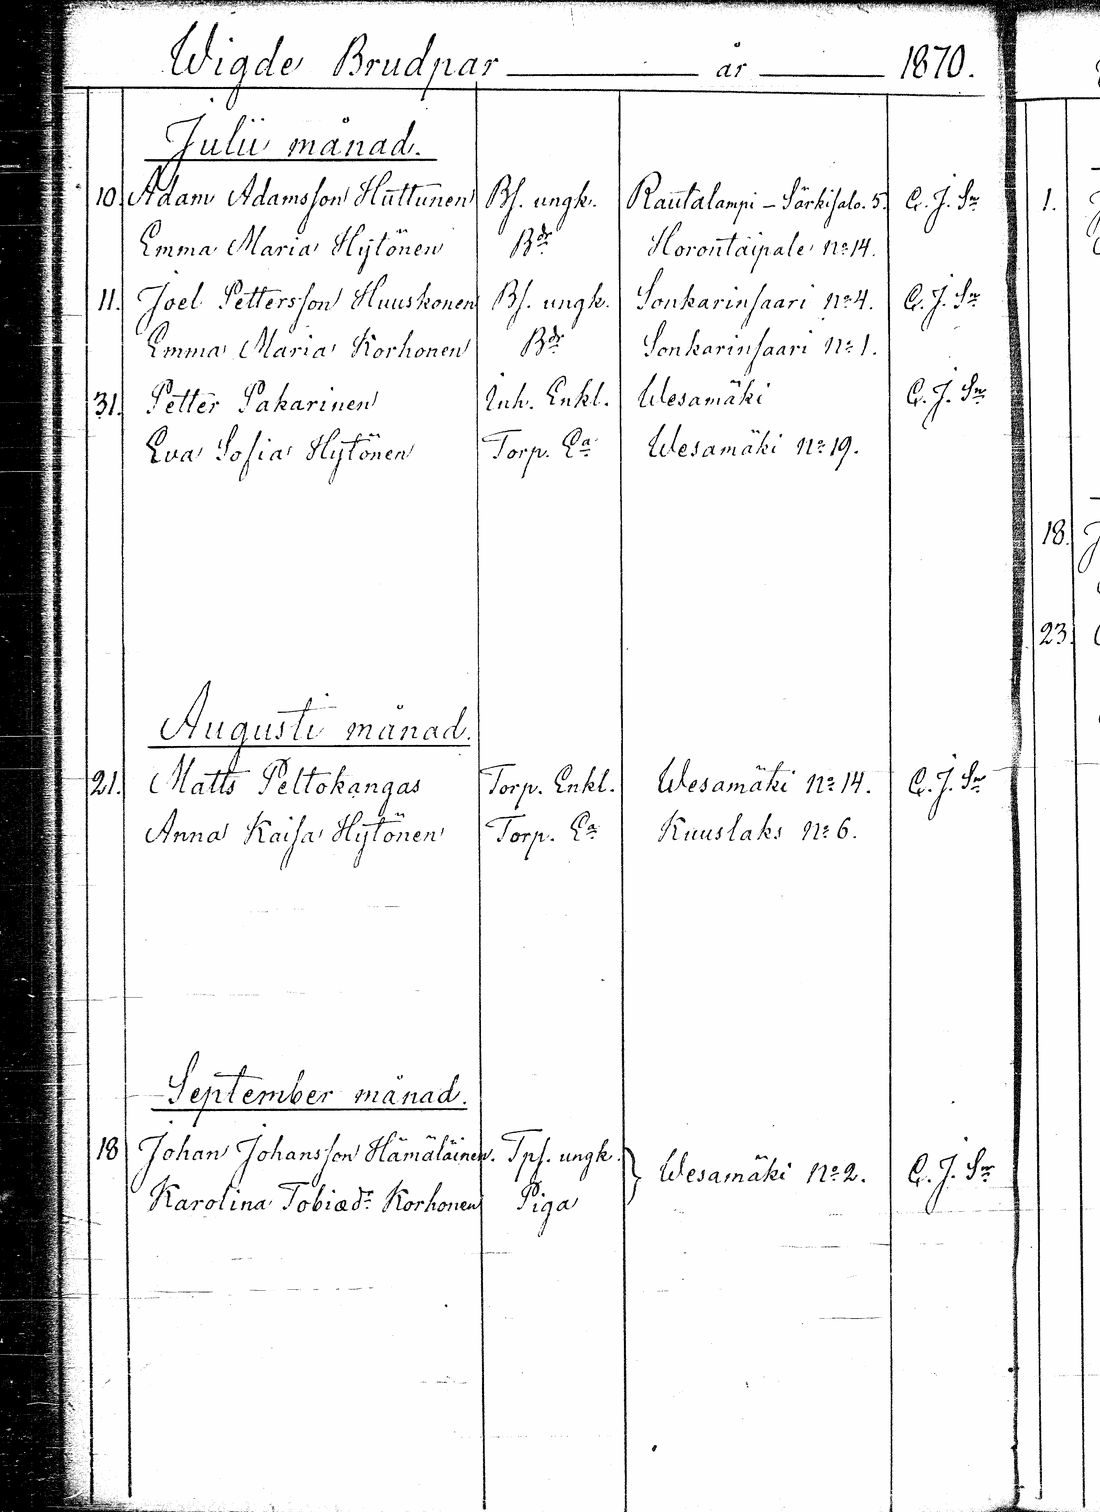 Wigde Brudpar år 1870.
Julii månad.
10. Adam Adamsson Huttunen Bs. ungk. Rautalampi – Särkisalo. 5. C. J. Sn
Emma Maria Hytönen Bdr Horontaipale No 14.
11. Joel Pettersson Huuskonen Bs. ungk. Sonkarinsaari No 4. C. J. Sn
Emma Maria Korhonen Bdr Sonkarinsaari No 1.
31. Petter Pakarinen Inh. Enkl. Wesamäki C. J. Sn
Eva Sofia Hytönen Torp. Ea Wesamäki No 19.
Augusti månad.
21. Matts Peltokangas Torp. Enkl. Wesamäki No 14. C. J. Sn
Anna Kaisa Hytönen Torp. Ea Kuuslaks No 6.
September månad.
18 Johan Johansson Hämäläinen. Tps. ungk. } Wesamäki No 2. C. J. Sn
Karolina Tobiædr Korhonen Piga
1.
18.
23.